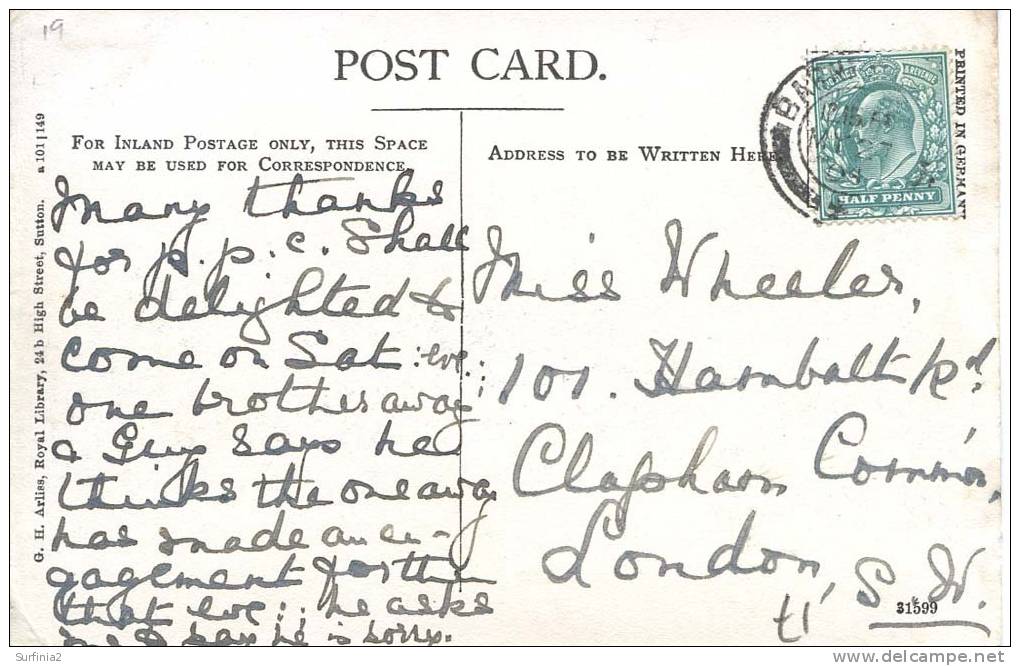 19
POST CARD.
FOR INLAND POSTAGE ONLY, THIS SPACE
MAY BE USED FOR CORRESPONDENCE.
ADDRESS TO BE WRITTEN HERE.
PRINTED IN GERMANY
& REVENUE
HALF PENNY
G. H. Arliss, Royal Library, 24b High Street, Sutton. a 101|149
Many thanks
for p.p.c. Shall
be delighted to
come on Sat: eve:;
one brother away
& Guy says he
thinks the one away
has made an en-
gagement for
that eve:; he asks
me to say he is sorry.
Miss Wheeler,
101. Hambalt Rd.
Clapham Common,
London,
S.W.
31599
Surfinia2
delcampe.net